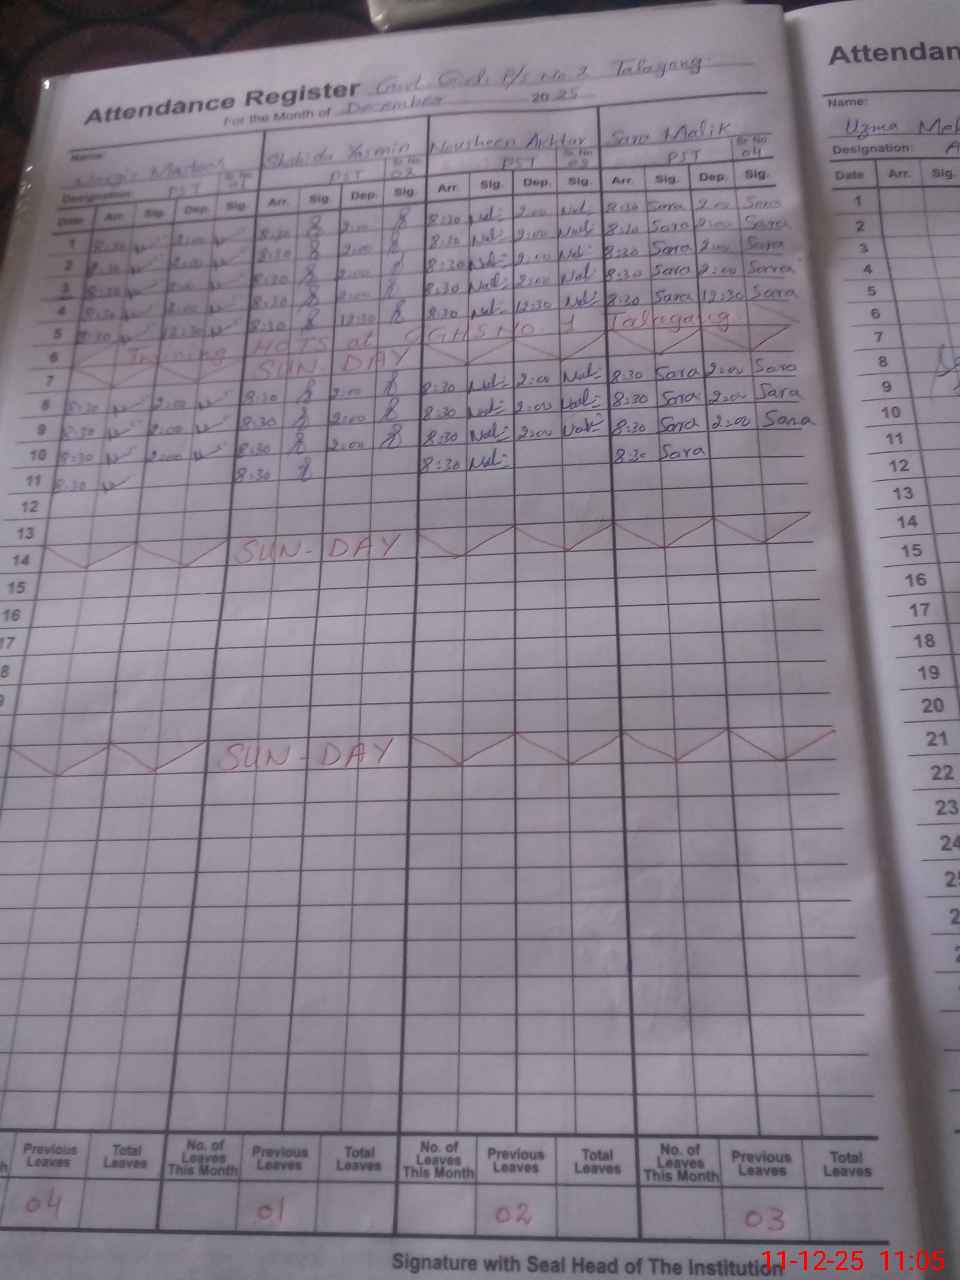 Attendance Register Govt. Girls P/S No 2 Talagang.
For the Month of December 2025
Name: Shahida Yasmin Nousheen Akhtar Sara Malik
Designation: PST Sr No 01 PST Sr No 02 PST Sr No 03 PST Sr No 04
Date Arr. Sig. Dep. Sig. Arr. Sig. Dep. Sig. Arr. Sig. Dep. Sig. Arr. Sig. Dep. Sig.
1 8:30 2:00 8:30 2:00 8:30 2:00 8:30 Sara 2:00 Sara
2 8:30 2:00 8:30 2:00 8:30 2:00 8:30 Sara 2:00 Sara
3 8:30 2:00 8:30 2:00 8:30 2:00 8:30 Sara 2:00 Sara
4 8:30 2:00 8:30 2:00 8:30 2:00 8:30 Sara 2:00 Sara
5 8:30 12:30 8:30 12:30 8:30 12:30 8:30 Sara 12:30 Sara
6 Training HOTS at GGHS NO. 1 Talagang.
7 SUN-DAY
8 8:30 2:00 8:30 2:00 8:30 2:00 8:30 Sara 2:00 Sara
9 8:30 2:00 8:30 2:00 8:30 2:00 8:30 Sara 2:00 Sara
10 8:30 2:00 8:30 2:00 8:30 2:00 8:30 Sara 2:00 Sara
11 8:30 8:30 8:30 8:30 Sara
12
13
14 SUN-DAY
15
16
17
8
9
SUN-DAY
Previous Leaves Total Leaves No. of Leaves This Month Previous Leaves Total Leaves No. of Leaves This Month Previous Leaves Total Leaves No. of Leaves This Month Previous Leaves Total Leaves
04 01 02 03
Signature with Seal Head of The Institution
Attendan
Name:
Uzma
Designation:
Date Arr. Sig.
1
2
3
4
5
6
7
8
9
10
11
12
13
14
15
16
17
18
19
20
21
22
23
24
11-12-25 11:05